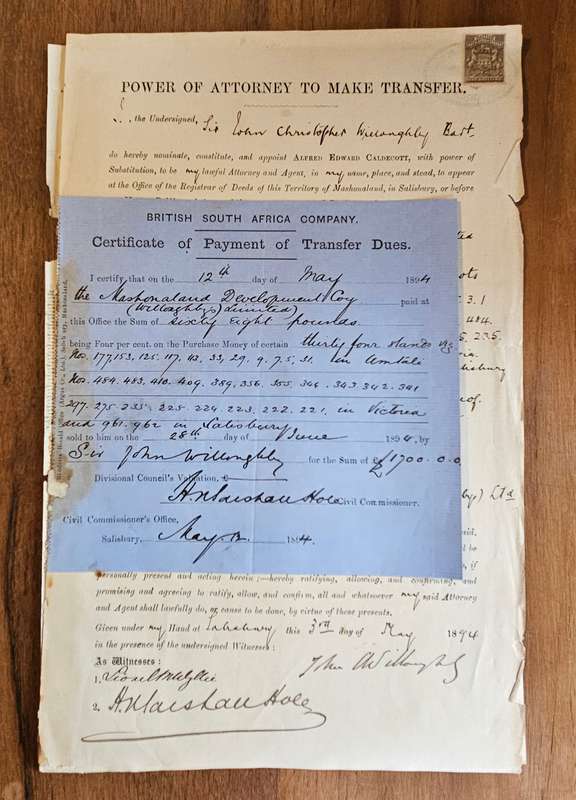 POWER OF ATTORNEY TO MAKE TRANSFER.
I, the Undersigned, Sir John Christopher Willoughby Bart.
do hereby nominate, constitute, and appoint ALFRED EDWARD CALDECOTT, with power of
Substitution, to be my lawful Attorney and Agent, in my name, place, and stead, to appear
at the Office of the Registrar of Deeds of this Territory of Mashonaland, in Salisbury, or before
BRITISH SOUTH AFRICA COMPANY.
Certificate of Payment of Transfer Dues.
I certify that on the 12th day of May 1894
the Mashonaland Development Coy
(Willoughbys Limited) paid at
this Office the Sum of sixty eight pounds
being Four per cent. on the Purchase Money of certain thirty four stands viz
Nos. 177, 153, 125, 117, 42, 33, 29, 9, 7, 5, 31. in Umtali
Nos. 484. 483. 410. 409. 389. 356. 355. 344. 343. 342. 341
297. 275. 235. 225. 224. 223. 222. 221. in Victoria
and 961. 962 in Salisbury
sold to him on the 28th day of June 1894 by
Sir John Willoughby for the Sum of £1700.0.0
Divisional Council's Valuation, £
H. Marshall Hole Civil Commissioner.
Civil Commissioner's Office,
Salisbury, May 12 1894.
Ltd
personally present and acting herein;—hereby ratifying, allowing, and confirming, and
promising and agreeing to ratify, allow, and confirm, all and whatsoever my said Attorney
and Agent shall lawfully do, or cause to be done, by virtue of these presents.
Given under my Hand at Salisbury this 3rd day of May 1894
in the presence of the undersigned Witnesses:
As Witnesses:
John C Willoughby
1.
2. H. Marshall Hole